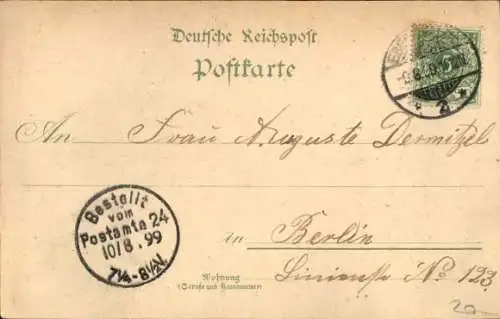 Deutsche Reichspost
Postkarte
5
2.
An Frau Auguste Dermitzel
Bestellt
vom
Postamte 24
10/8.99
7¼-8½N.
in Berlin
Wohnung
Linienstr No 123.
20